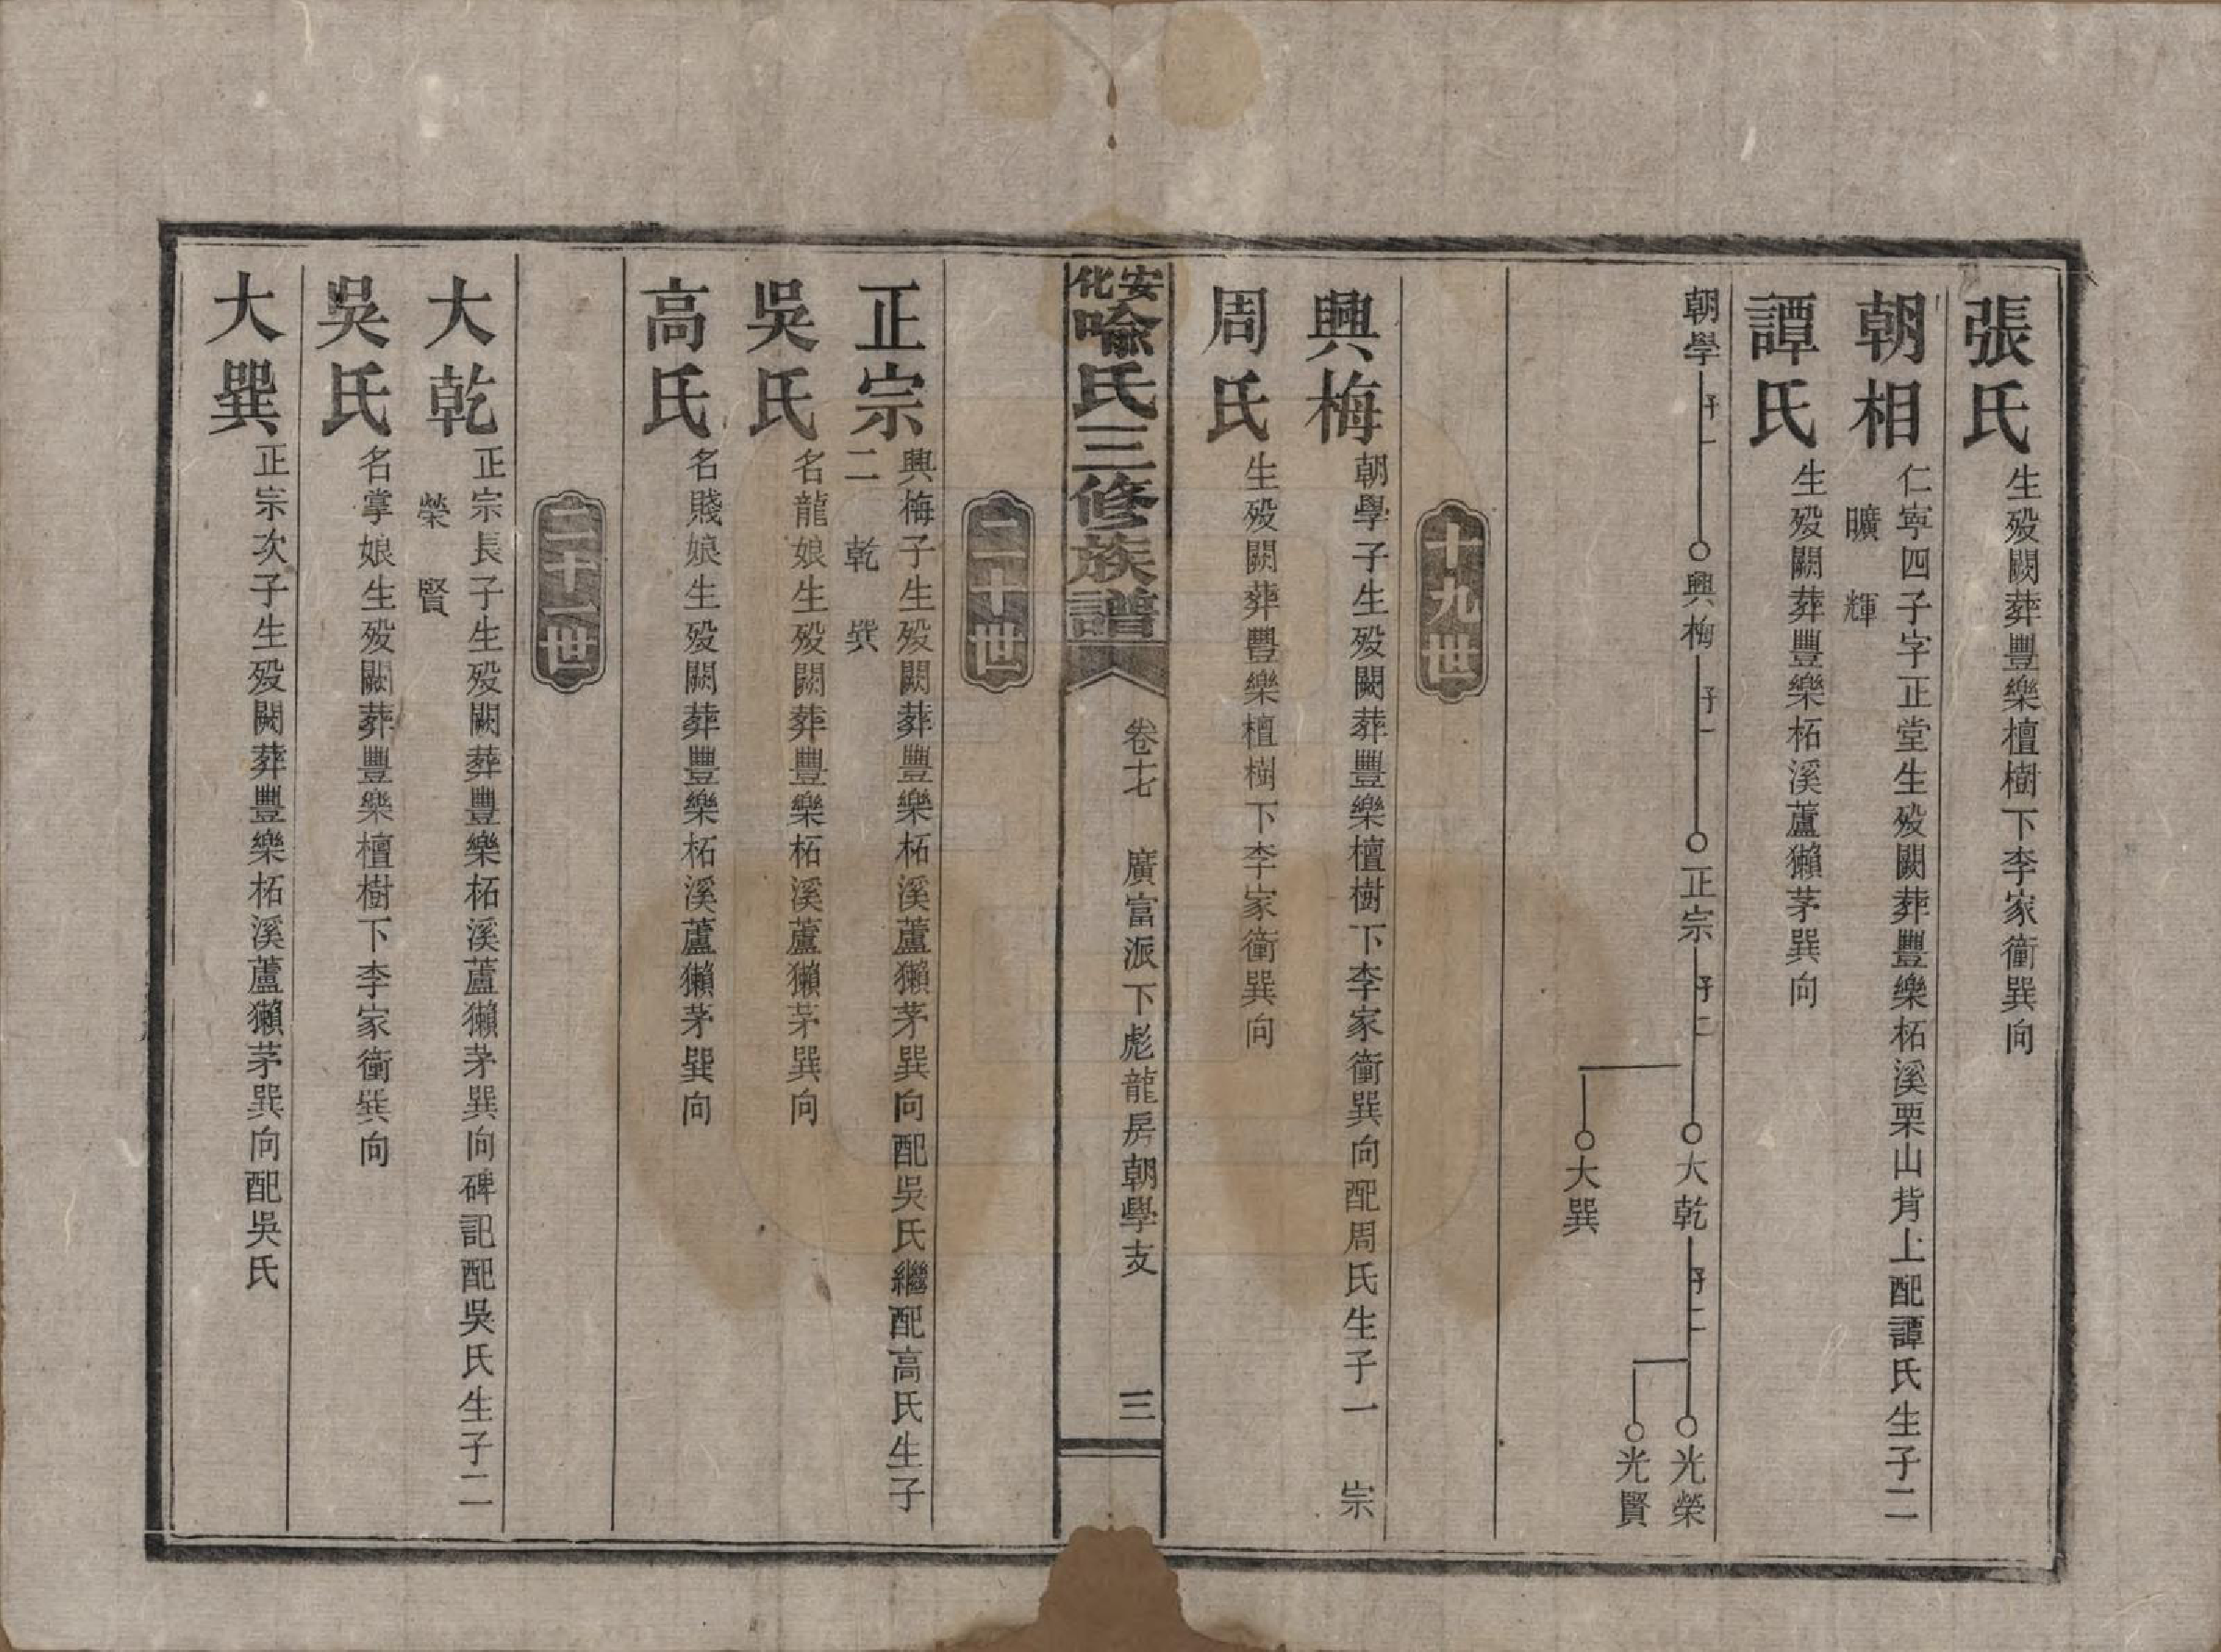 張氏 生歿闕葬豐樂檀樹下李家衝巽向
朝相 仁寜四子字正堂生歿闕葬豐樂柘溪栗山背上配譚氏生子二
曠 輝
譚氏 生歿闕葬豐樂柘溪蘆獺茅巽向
朝學 子一 興梅 子一 正宗 子二 大乾 子二 光榮
光賢
大巽
十九世
興梅 朝學子生歿闕葬豐樂檀樹下李家衝巽向配周氏生子一 宗
周氏 生歿闕葬豐樂檀樹下李家衝巽向
安化喻氏三修族譜 卷十七 廣富派下彪龍房朝學支 三
二十世
正宗 興梅子生歿闕葬豐樂柘溪蘆獺茅巽向配吳氏繼配高氏生子
二 乾 巽
吳氏 名龍娘生歿闕葬豐樂柘溪蘆獺茅巽向
高氏 名賤娘生歿闕葬豐樂柘溪蘆獺茅巽向
二十一世
大乾 正宗長子生歿闕葬豐樂柘溪蘆獺茅巽向碑記配吳氏生子二
榮 賢
吳氏 名掌娘生歿闕葬豐樂檀樹下李家衝巽向
大巽 正宗次子生歿闕葬豐樂柘溪蘆獺茅巽向配吳氏